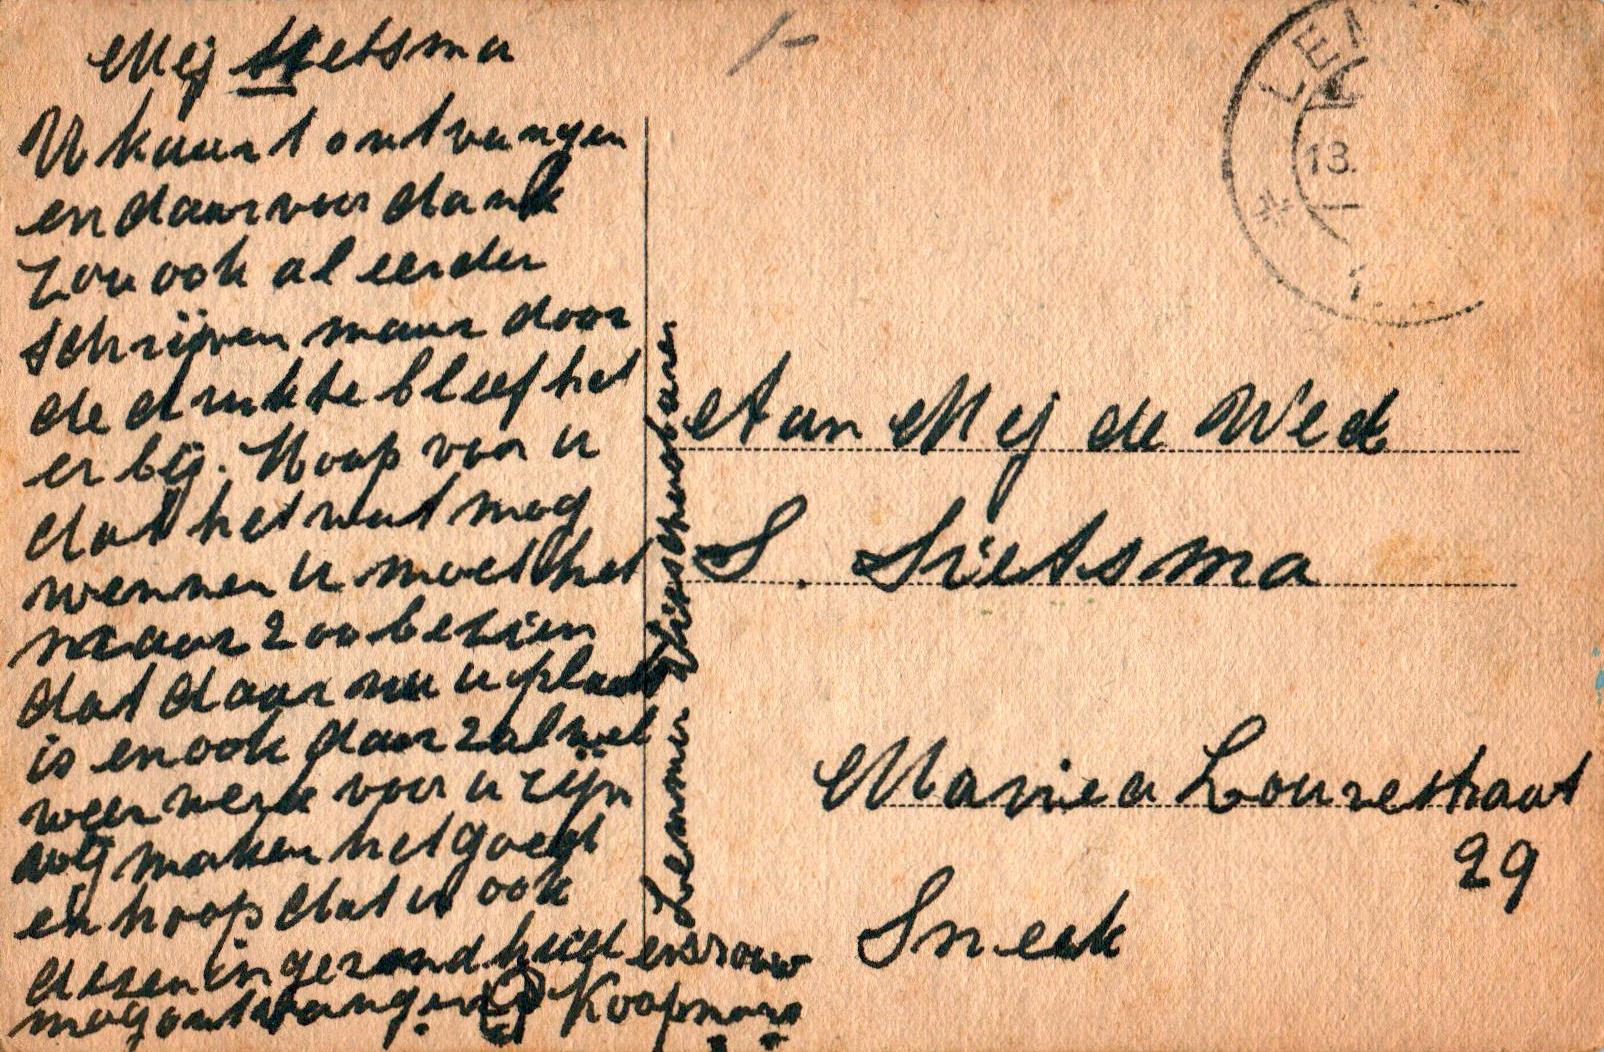 Mej Sietsma
U kaart ontvangen
en daarvoor dank
Zou ook al eerder
schrijven maar door
de drukte bleef het
er bij. Hoop voor u
dat het wat mog
wennen u moet het
maar zoo bezien
dat daar nu u plaats
is en ook daar zal wel
weer werk voor u zijn
wij maken het goed
en hoop dat u ook
desen in gezondhuid
mog ontvangen
en vrouw
Koopmans
Lemmer Visscherburen
1-
LE
13.
Aan Mej de Wed
S. Sietsma
Mariea Louisestraat
29
Sneek